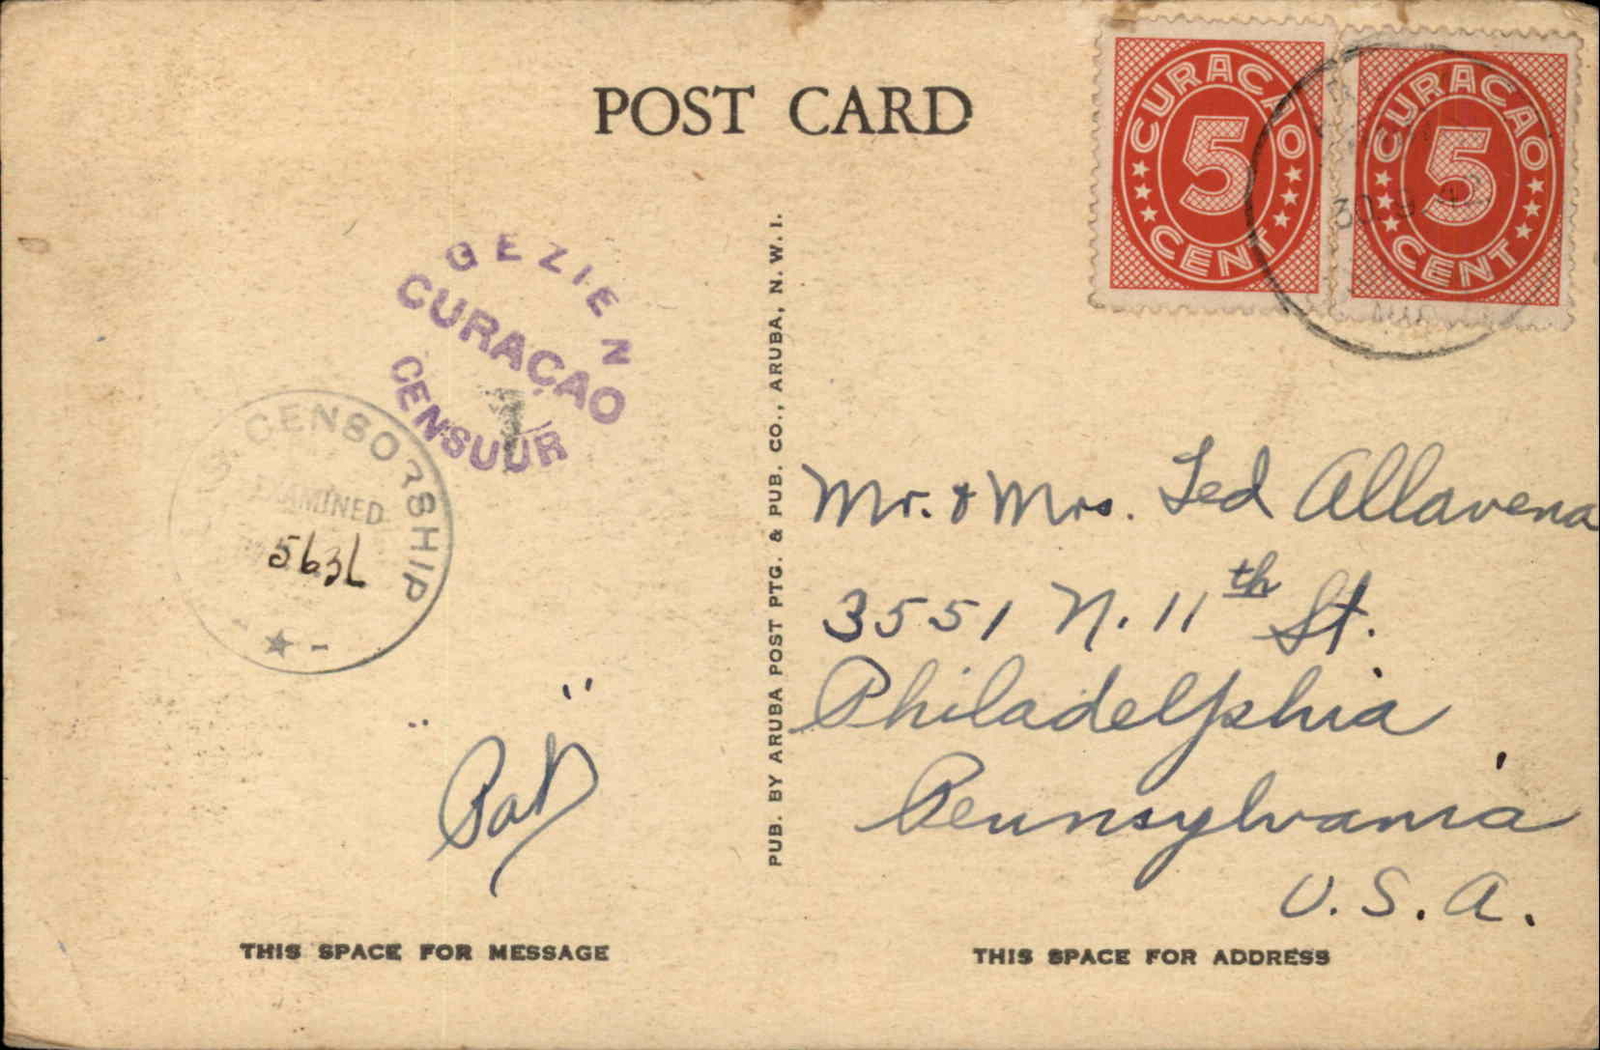 POST CARD
CURACAO
5
CENT
CURACAO
5
CENT
30. 9. 42
GEZIEN
CURAÇAO
1
CENSUUR
CENSORSHIP
EXAMINED
563L
"Pat"
PUB. BY ARUBA POST PTG. & PUB. CO., ARUBA, N. W. I.
Mr. & Mrs. Ted Allavena
3551 N. 11th St.
Philadelphia
Pennsylvania
U. S. A.
THIS SPACE FOR MESSAGE
THIS SPACE FOR ADDRESS